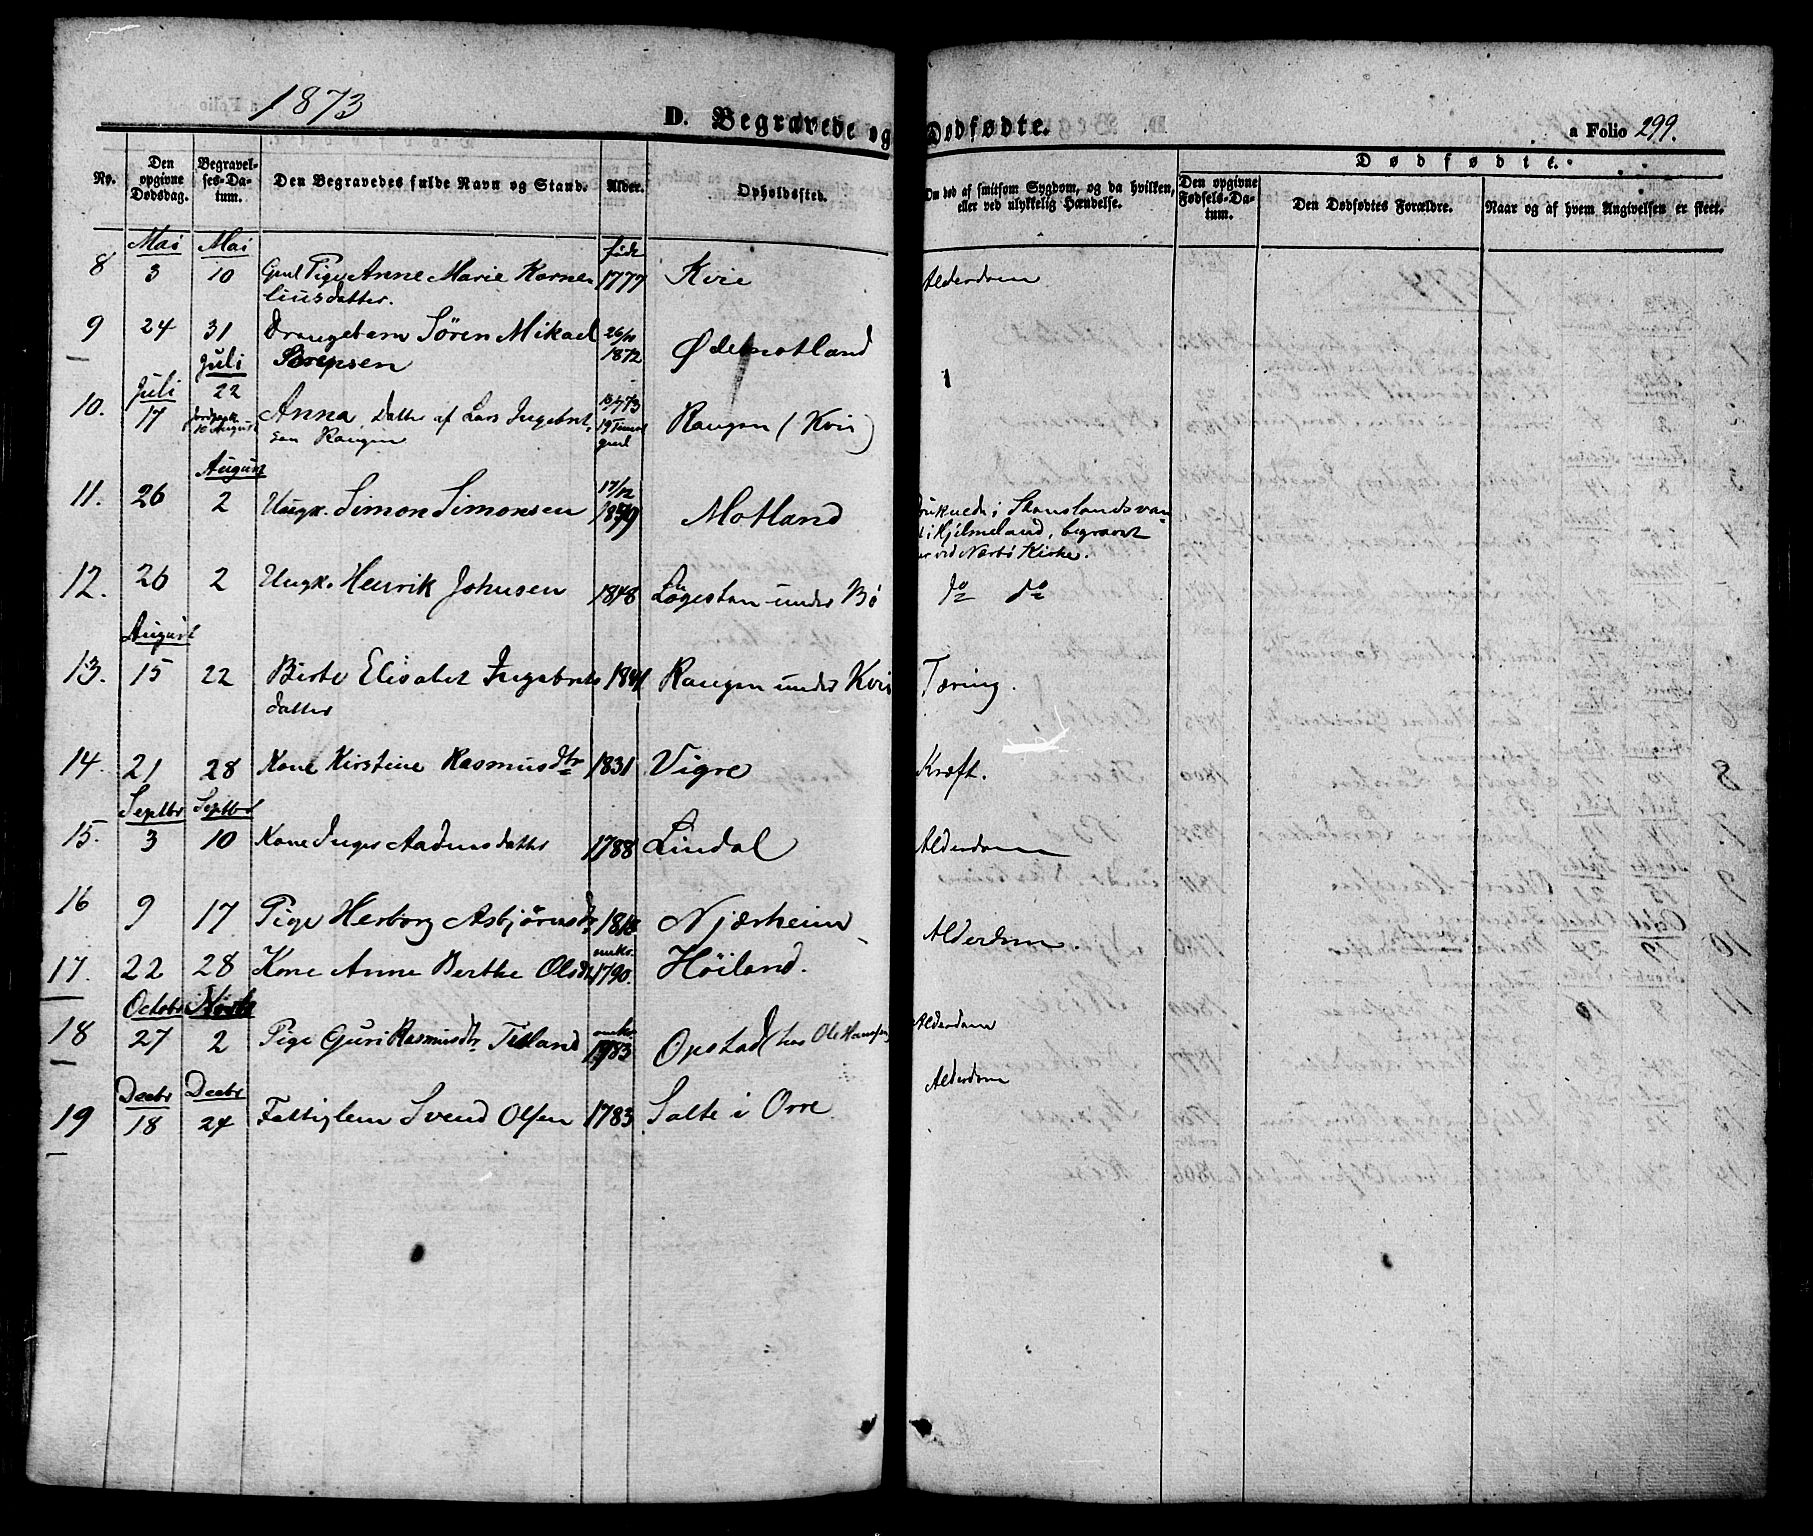 1873
D. Begravede og Dødfødte.
a Folio 299.
No.
Den opgivne Dødsdag.
Begravelses-Datum.
Den Begravedes fulde Navn og Stand.
Alder.
Opholdssted.
Om død af smitsom Sygdom, og da hvilken, eller ved ulykkelig Hændelse.
Dødfødte.
Den opgivne Fødsels-Datum.
Den Dødfødtes Forældre.
Naar og af hvem Angivelsen er skeet.
Mai Mai født
8 3 10 Gml Pige Anne Marie Korne- 1777 Kvie Alderdom
liusdatter.
9 24 31 Drængebarn Sören Mikael 26/10 1872 Ødemotland
Sörensen
Juli Juli
10. 17 22 Anna, Datter af Lars Ingebret- 73 Rangen (Kvie)
10 August sen Rangen 19 Timer gml
August
11. 26 2 Ungk. Simon Simonsen 17/12 Motland Druknede i Skanslandsvan-
det i Hjelmeland, begravet
er ved Nærbö Kirke.
12. 26 2 Ungk. Henrik Johnsen 1848 under Bö do do
August
13. 15 22 Birte Elisabet Ingebrets- Rangen under Kvie Tæring.
datter
14. 21 28 Kone Kirstine Rasmusdtr 1831 Vigre Kræft.
Septbr Septbr
15. 3 10 Kone Inger Aadnesdatter 1788 Lindal Alderdom
16 9 17 Pige Herborg Asbjörnsdtr Njærheim Alderdom.
17. 22 28 Kone Anne Berthe Olsdtr omkr. 1790. Höiland.
Octobr Novbr
18 27 2 Pige Guri Rasmusdtr Tiland omkr. 1783 Opstad (hos Ole Hansen) Alderdom
Decbr Decbr
19 18 24 Fattiglem Svend Olsen 1783 Salte i Orre Alderdom